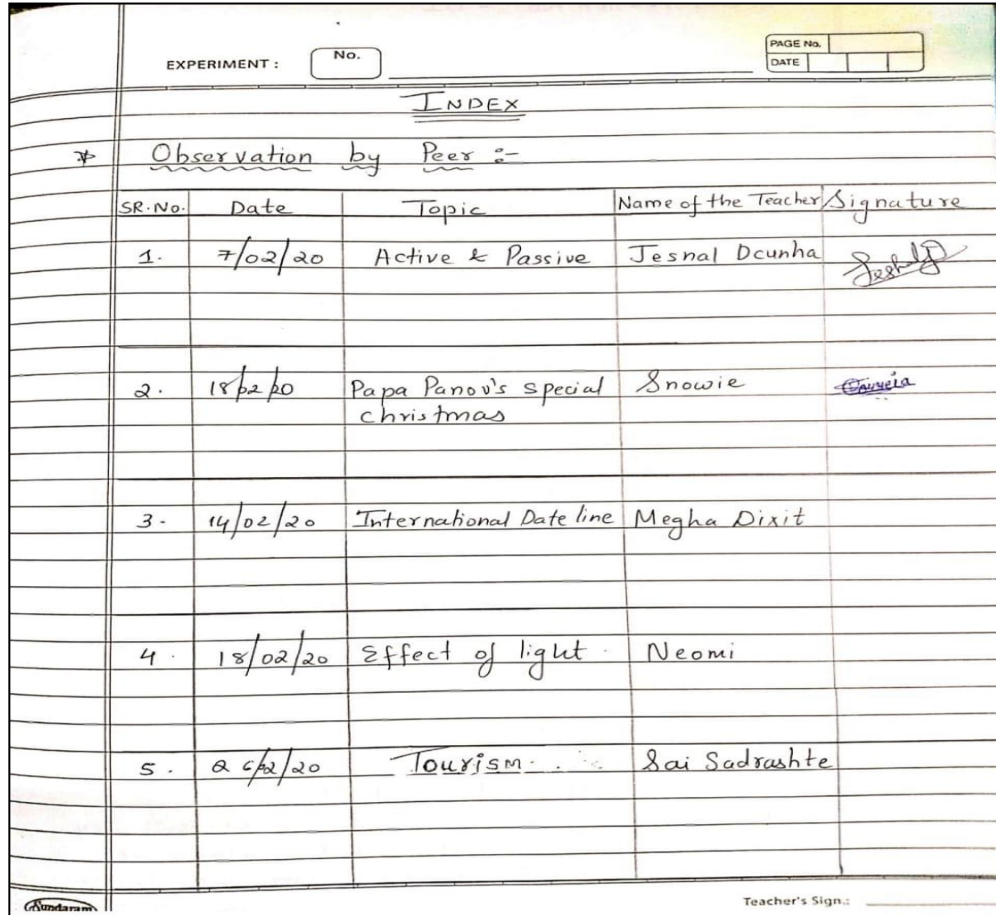 EXPERIMENT : No.
PAGE No.
DATE
INDEX
* Observation by Peer :-
SR.No. Date Topic Name of the Teacher Signature
1. 7/02/20 Active & Passive Jesnal Dcunha
2. 18/02/20 Papa Panov's special Snowie
christmas
3. 14/02/20 International Date line Megha Dixit
4. 18/02/20 Effect of light. Neomi
5. 26/02/20 Tourism. Sai Sadrashte
Sundaram Teacher's Sign.: